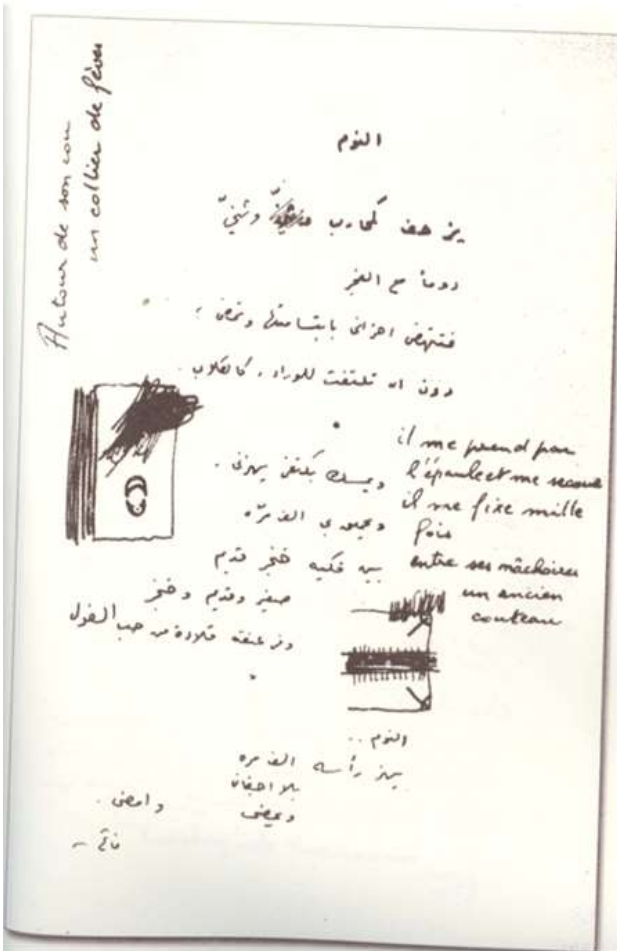 Autour de son cou
un collier de fèves
النوم
يزحف كمحارب وثنيّ
دوماً مع الفجر
فتنهض احزاني بابتسامتها وتمضي ؛
دون ان تلتفت للوراء ، كالكلاب .
ويمسك بكتفي يهزني .
ويحدق بي الف مرّه
بين فكيه خنجر قديم
صغير وقديم وخنجر
وفي عنقه قلادة من حب الفول
il me prend par
l'épaule et me secoue
il me fixe mille
fois
entre ses mâchoires
un ancien
couteau
النوم ..
يهز رأسه الف مره
بلا اجفان
ويمضي وامضي .